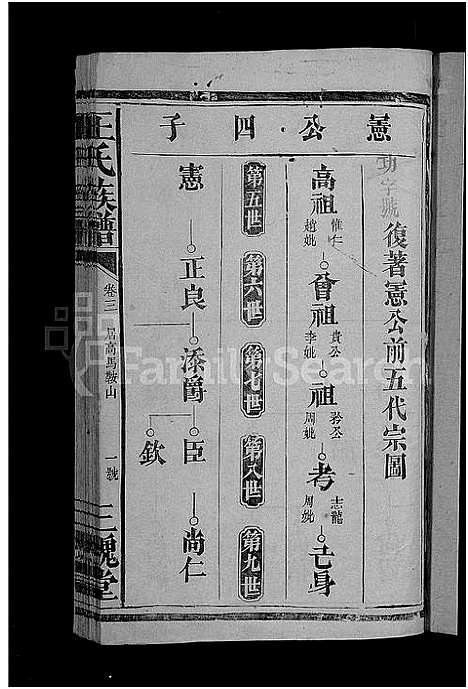 憲公四子
復著憲公前五代宗圖
高祖 惟仁 趙妣
曾祖 貴公 李妣
祖 矜公 周妣
考 志龍 周妣
亡身
第五世 第六世 第七世 第八世 第九世
憲 正良 添爵 臣 尚仁
欽
王氏族譜
卷三 居高馬鞍山
一號
三槐堂
FamilySearch